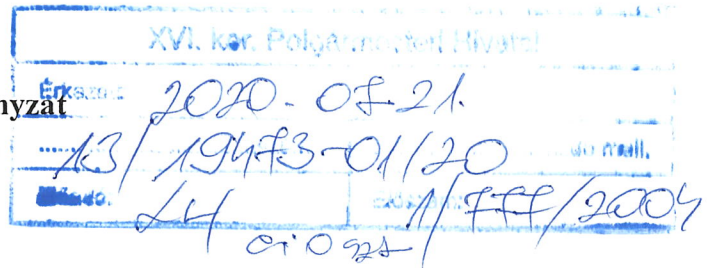 XVI. ker. Polgármesteri Hivatal
Érkezett: 2020-07-21.
nyzat
13/19473-01/20 mell.
LH 1/777/2004